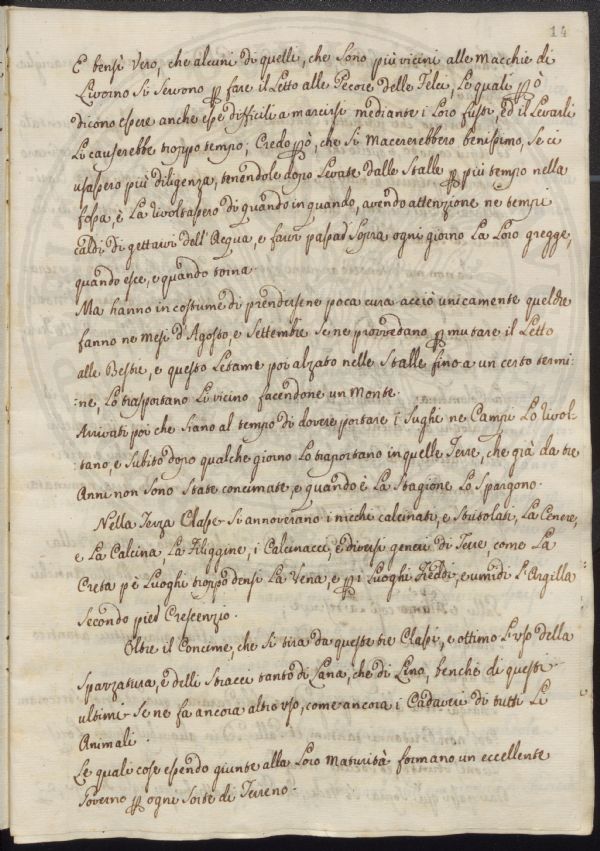 14
E bensì Vero, che alcuni di quelli, che sono più vicini alle Macchie di
Livorno Si Servono ꝑ fare il Letto alle Pecore delle Felci, Le quali ꝑò
dicono essere anch'esse difficili a marcirsi mediante i Loro fusti, ed il Levarli
Li causerebbe troppo tempo; Credo ꝑò, che Si Macererebbero benissimo, Se ci
usassero più diligenza, tenendole dopo Levate dalle Stalle ꝑ più tempo nella
fossa, e La rivoltassero di quando in quando, avendo attenzione ne tempi
caldi di gettarvi dell'Acqua, e farvi passar Sopra ogni giorno La Loro gregge,
quando esce, e quando torna.
Ma hanno in costume di prendersene poca cura acciò unicamente quel che
fanno ne Mesi d'Agosto, e Settembre se ne provvedano ꝑ mutare il Letto
alle Bestie, e questo Letame poi alzato nelle Stalle fino a un certo termi:
:ne, Lo trasportano Lì vicino facendone un Monte.
Arrivati poi che siano al tempo di dovere portare i Sughi ne Campi Lo rivol=
:tano, e Subito dopo qualche giorno Lo trasportano in quelle Terre, che già da tre
Anni non Sono State concimate, e quando è La Stagione Lo Spargono.
Nella Terza Classe Si annoverano i nicchi calcinati, e Stritolati, La Cenere,
e La Calcina, La Filiggine, i Calcinacci, e diversi generi di Terre, come La
Creta pe Luoghi troppo densi La Vena, e ꝑ i Luoghi freddi, e umidi L'Argilla
Secondo pier Crescenzio.
Oltre il Concime, che Si tira da queste tre Classi, e ottimo L'uso della
Spazzatura, e delli Stracci tanto di Lana, che di Lino, benchè di questi
ultimi Se ne fa ancora altro uso, come ancora i Cadaveri di tutti Li
Animali.
Le quali cose essendo giunte alla Loro Maturità formano un eccellente
Governo ꝑ ogni Sorte di Terreno.